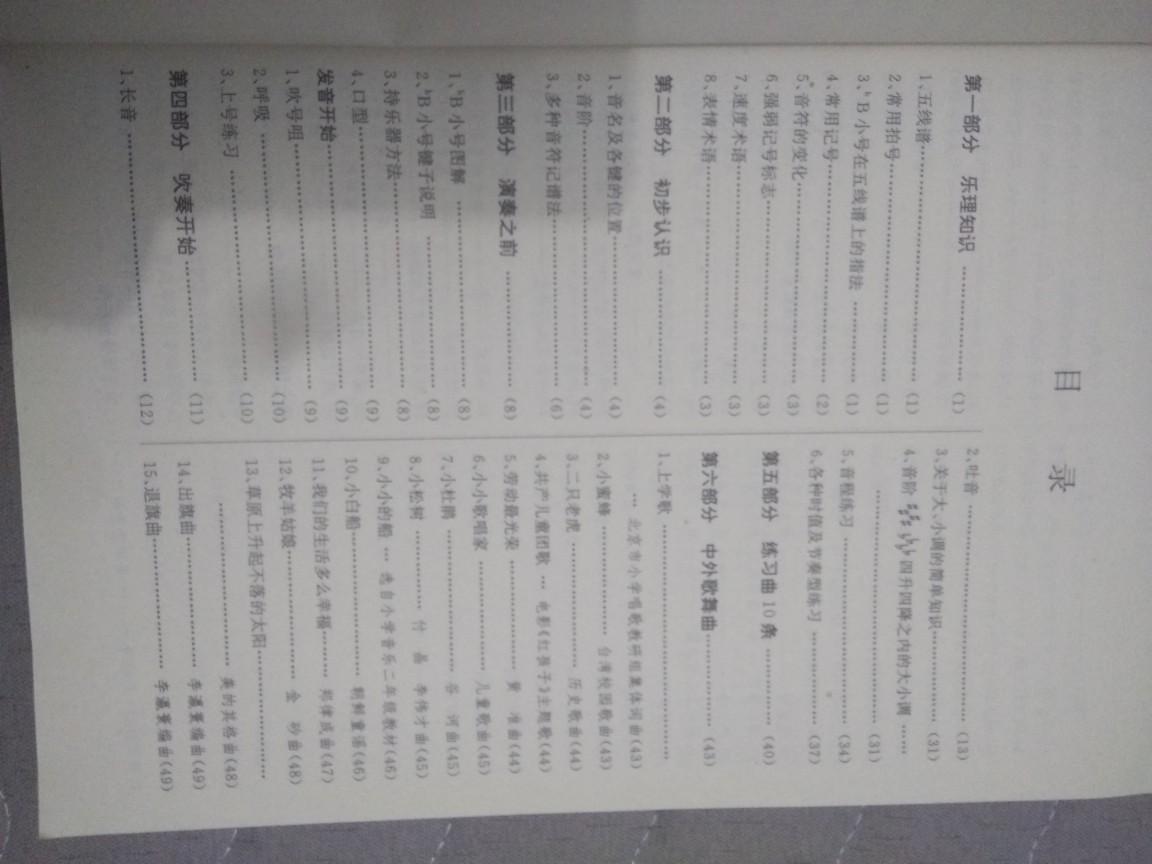 目 录
第一部分 乐理知识 …………… (1)
1、五线谱…………………………… (1)
2、常用拍号………………………… (1)
3、♭B 小号在五线谱上的指法 ……… (1)
4、常用记号………………………… (2)
5、音符的变化……………………… (3)
6、强弱记号标志…………………… (3)
7、速度术语………………………… (3)
8、表情术语………………………… (3)
第二部分 初步认识 …………… (4)
1、音名及各键的位置……………… (4)
2、音阶……………………………… (4)
3、多种音符记谱法………………… (6)
第三部分 演奏之前 …………… (8)
1、♭B 小号图解 …………………… (8)
2、♭B 小号键子说明 ……………… (8)
3、持乐器方法……………………… (8)
4、口型……………………………… (9)
发音开始…………………………… (9)
1、吹号咀…………………………… (9)
2、呼吸 …………………………… (10)
3、上号练习 ……………………… (10)
第四部分 吹奏开始 …………… (11)
1、长音 …………………………… (12)
2、吐音 …………………………… (13)
3、关于大、小调的简单知识……… (31)
4、音阶 四升四降之内的大小调 ……
…………………………… (31)
5、音程练习 ……………………… (34)
6、各种时值及节奏型练习 ……… (37)
第五部分 练习曲 10 条 ………… (40)
第六部分 中外歌舞曲…………… (43)
1、上学歌 ……………………………
… 北京市小学唱歌教研组集体词曲(43)
2、小蜜蜂 …………… 台湾校园歌曲(43)
3、二只老虎 ……………… 历史歌曲(44)
4、共产儿童团歌 … 电影《红孩子》主题歌(44)
5、劳动最光荣 …………… 黄 准曲(44)
6、小小歌唱家 …………… 儿童歌曲(45)
7、小杜鹃 ………………… 谷 词曲(45)
8、小松树 ………… 付 晶 李伟才曲(45)
9、小小的船 … 选自小学音乐二年级教材(46)
10、小白船………………… 朝鲜童谣(46)
11、我们的生活多么幸福…… 郑律成曲(47)
12、牧羊姑娘……………… 金 砂曲(48)
13、草原上升起不落的太阳……………
………………… 美的其格曲(48)
14、出旗曲……………… 李遇秉编曲(49)
15、退旗曲……………… 李遇秉编曲(49)